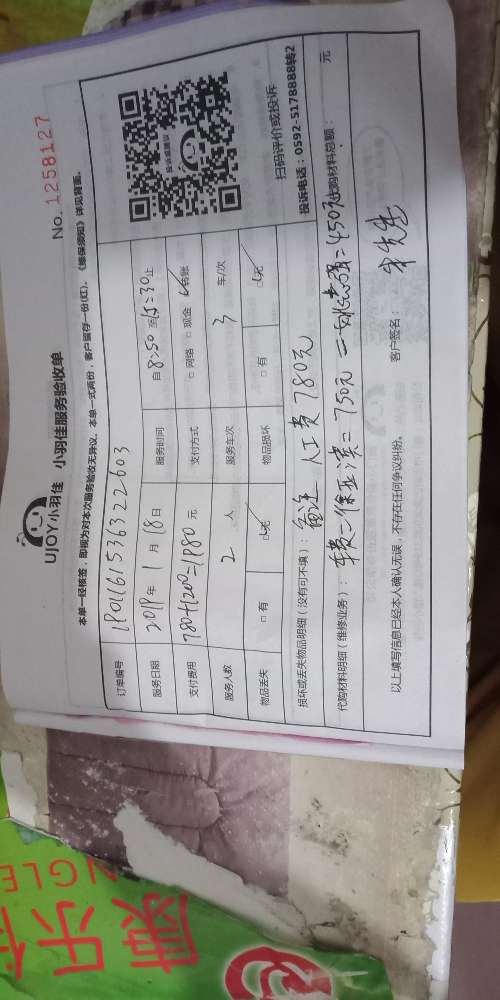 UJOY小羽佳 小羽佳服务验收单
No. 1258127
本单一经核签，即视为对本次服务验收无异议，本单一式两份，客户留存一份(红)，《维保须知》详见背面。
订单编号
服务日期 2019 年 1 月 18 日 服务时间 自 8:50 至 15:30 止
支付费用 780+1200=1980 元 支付方式 □ 网络 □ 现金 ☑ 转账
服务人数 2 人 服务车次 3 车/次
物品丢失 □ 有 ☑ 无 物品损坏 □ 有 ☑ 无
投诉或建议
扫码评价或投诉
投诉电话：0592-5178888转2
损坏或丢失物品明细（没有可不填）： 备注 人工费 780元
代购材料明细（维修业务）： 车费二 =750元 =450元 代购材料总额： 元
以上填写信息已经本人确认无误，不存在任何争议纠纷。 客户签名： 先生
康乐
NGLE